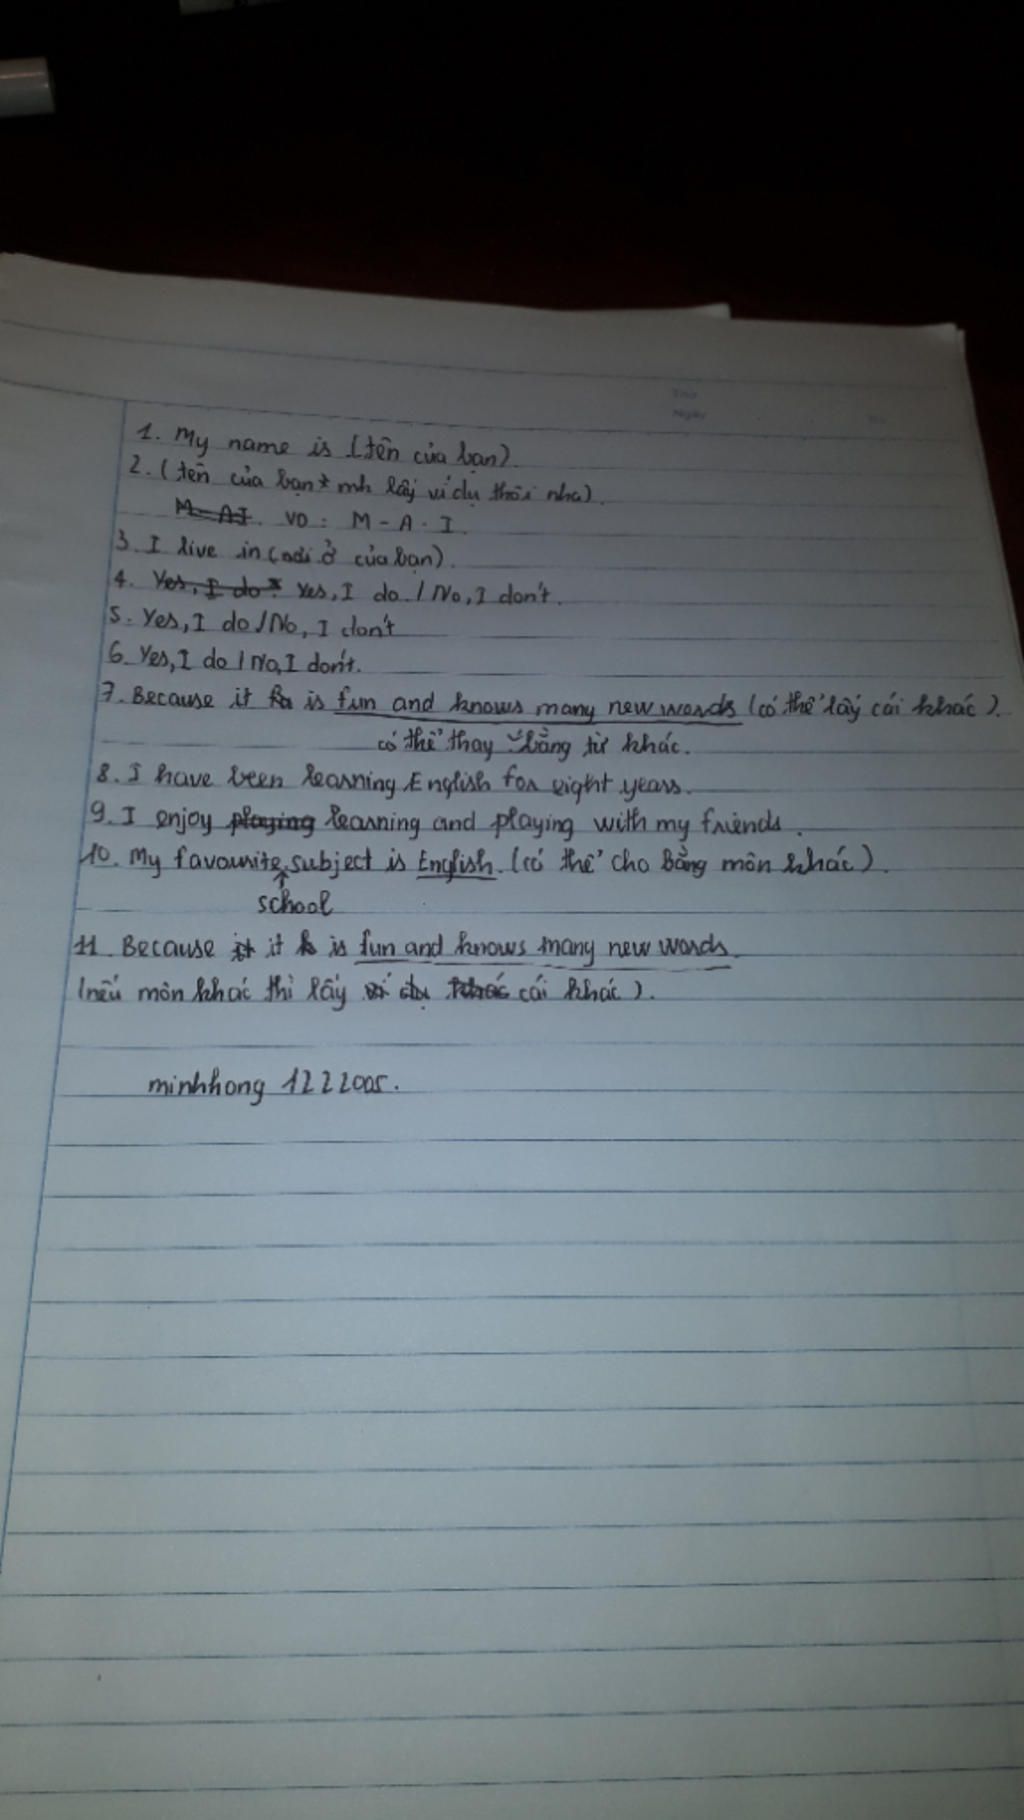 Thứ
Ngày
1. My name is (tên của bạn).
2. (tên của bạn * mh lấy ví dụ thôi nha).
M-AI. VD: M-A-I.
3. I live in (nơi ở của bạn).
4. Yes, I do * Yes, I do / No, I don't.
5. Yes, I do / No, I don't
6. Yes, I do / No, I don't.
7. Because it is fun and knows many new words (có thể lấy cái khác).
có thể thay bằng từ khác.
8. I have been learning English for eight years.
9. I enjoy playing learning and playing with my friends.
10. My favourite subject is English. (có thể cho bằng môn khác).
school
11. Because it it is fun and knows many new words.
(nếu môn khác thì lấy ví dụ khác cái khác).
minhhong 1222005.